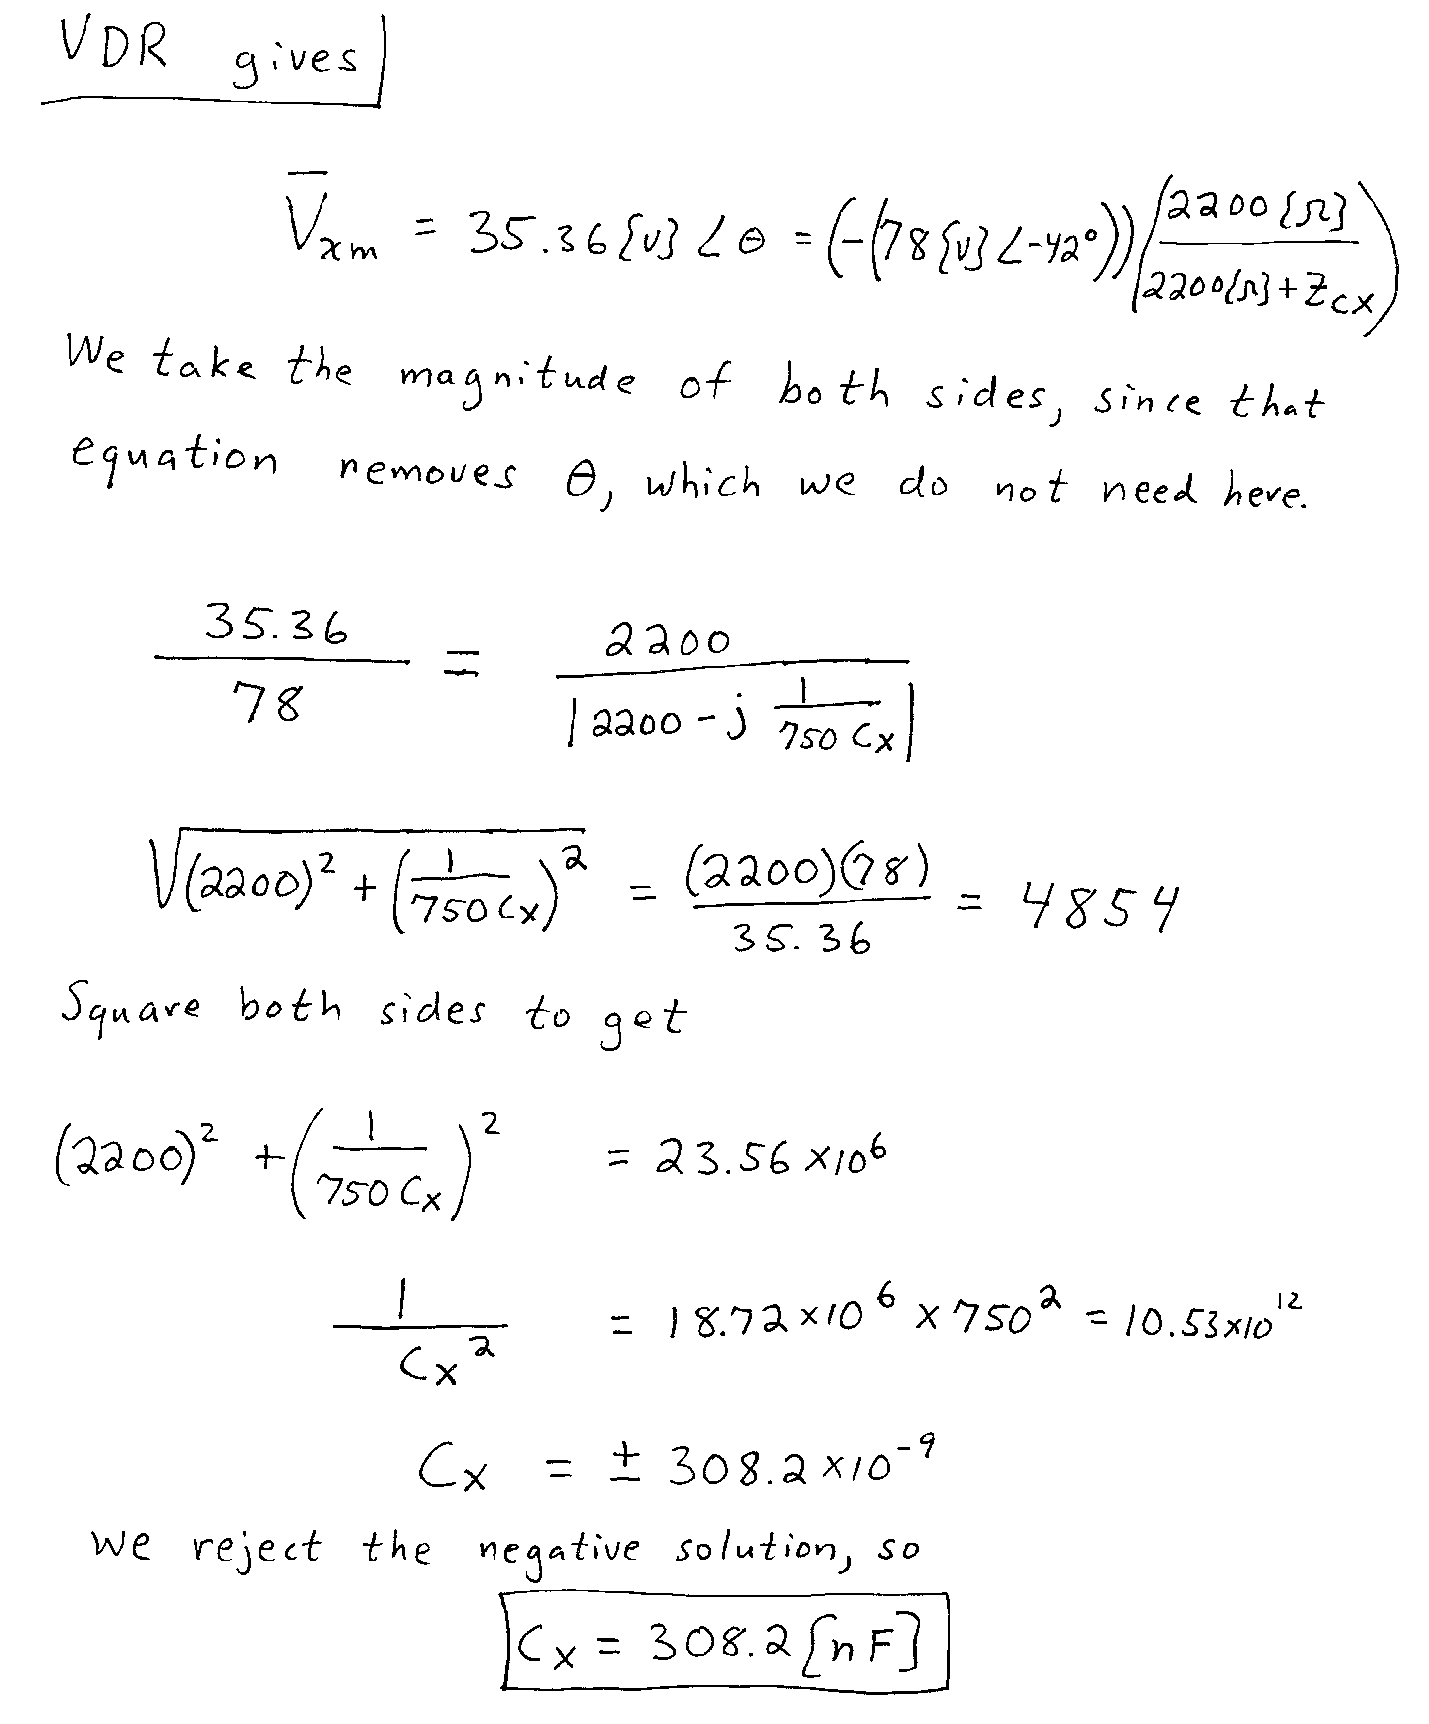 VDR gives
V̅xm = 35.36{V} ∠θ = (-(78{V}∠-42°)) (2200{Ω} / 2200{Ω}+Zcx)
We take the magnitude of both sides, since that
equation removes θ, which we do not need here.
35.36 / 78 = 2200 / |2200 - j 1/750 Cx|
√((2200)² + (1/750Cx)²) = (2200)(78) / 35.36 = 4854
Square both sides to get
(2200)² + (1/750 Cx)² = 23.56 x10⁶
1/Cx² = 18.72 x10⁶ x 750² = 10.53x10¹²
Cx = ± 308.2 x10⁻⁹
we reject the negative solution, so
Cx = 308.2 [nF]